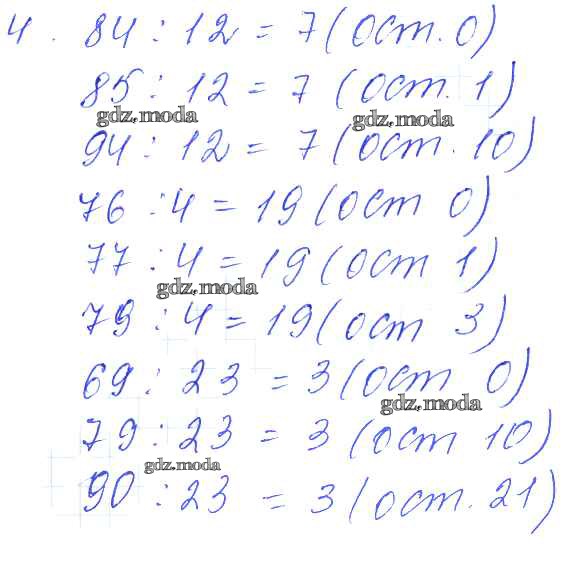 4. 84 : 12 = 7 (ост. 0)
85 : 12 = 7 (ост. 1)
gdz.moda gdz.moda
94 : 12 = 7 (ост. 10)
76 : 4 = 19 (ост 0)
77 : 4 = 19 (ост 1)
gdz.moda
79 : 4 = 19 (ост 3)
69 : 23 = 3 (ост 0)
gdz.moda
79 : 23 = 3 (ост 10)
gdz.moda
90 : 23 = 3 (ост. 21)